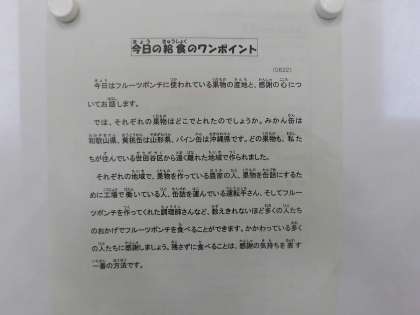 今日の給食のワンポイント
(0622)
今日はフルーツポンチに使われている果物の産地と、感謝の心につ
いてお話します。
では、それぞれの果物はどこでとれたのでしょうか。みかん缶は
和歌山県、黄桃缶は山形県、パイン缶は沖縄県です。どの果物も、私た
ちが住んでいる世田谷区から遠く離れた地域で作られました。
それぞれの地域で、果物を作っている農家の人、果物を缶詰にするた
めに工場で働いている人、缶詰を運んでいる運転手さん、そしてフルー
ツポンチを作ってくれた調理師さんなど、数えきれないほど多くの人たち
のおかげでフルーツポンチを食べることができます。かかわっている多く
の人たちに感謝しましょう。残さずに食べることは、感謝の気持ちを表す
一番の方法です。